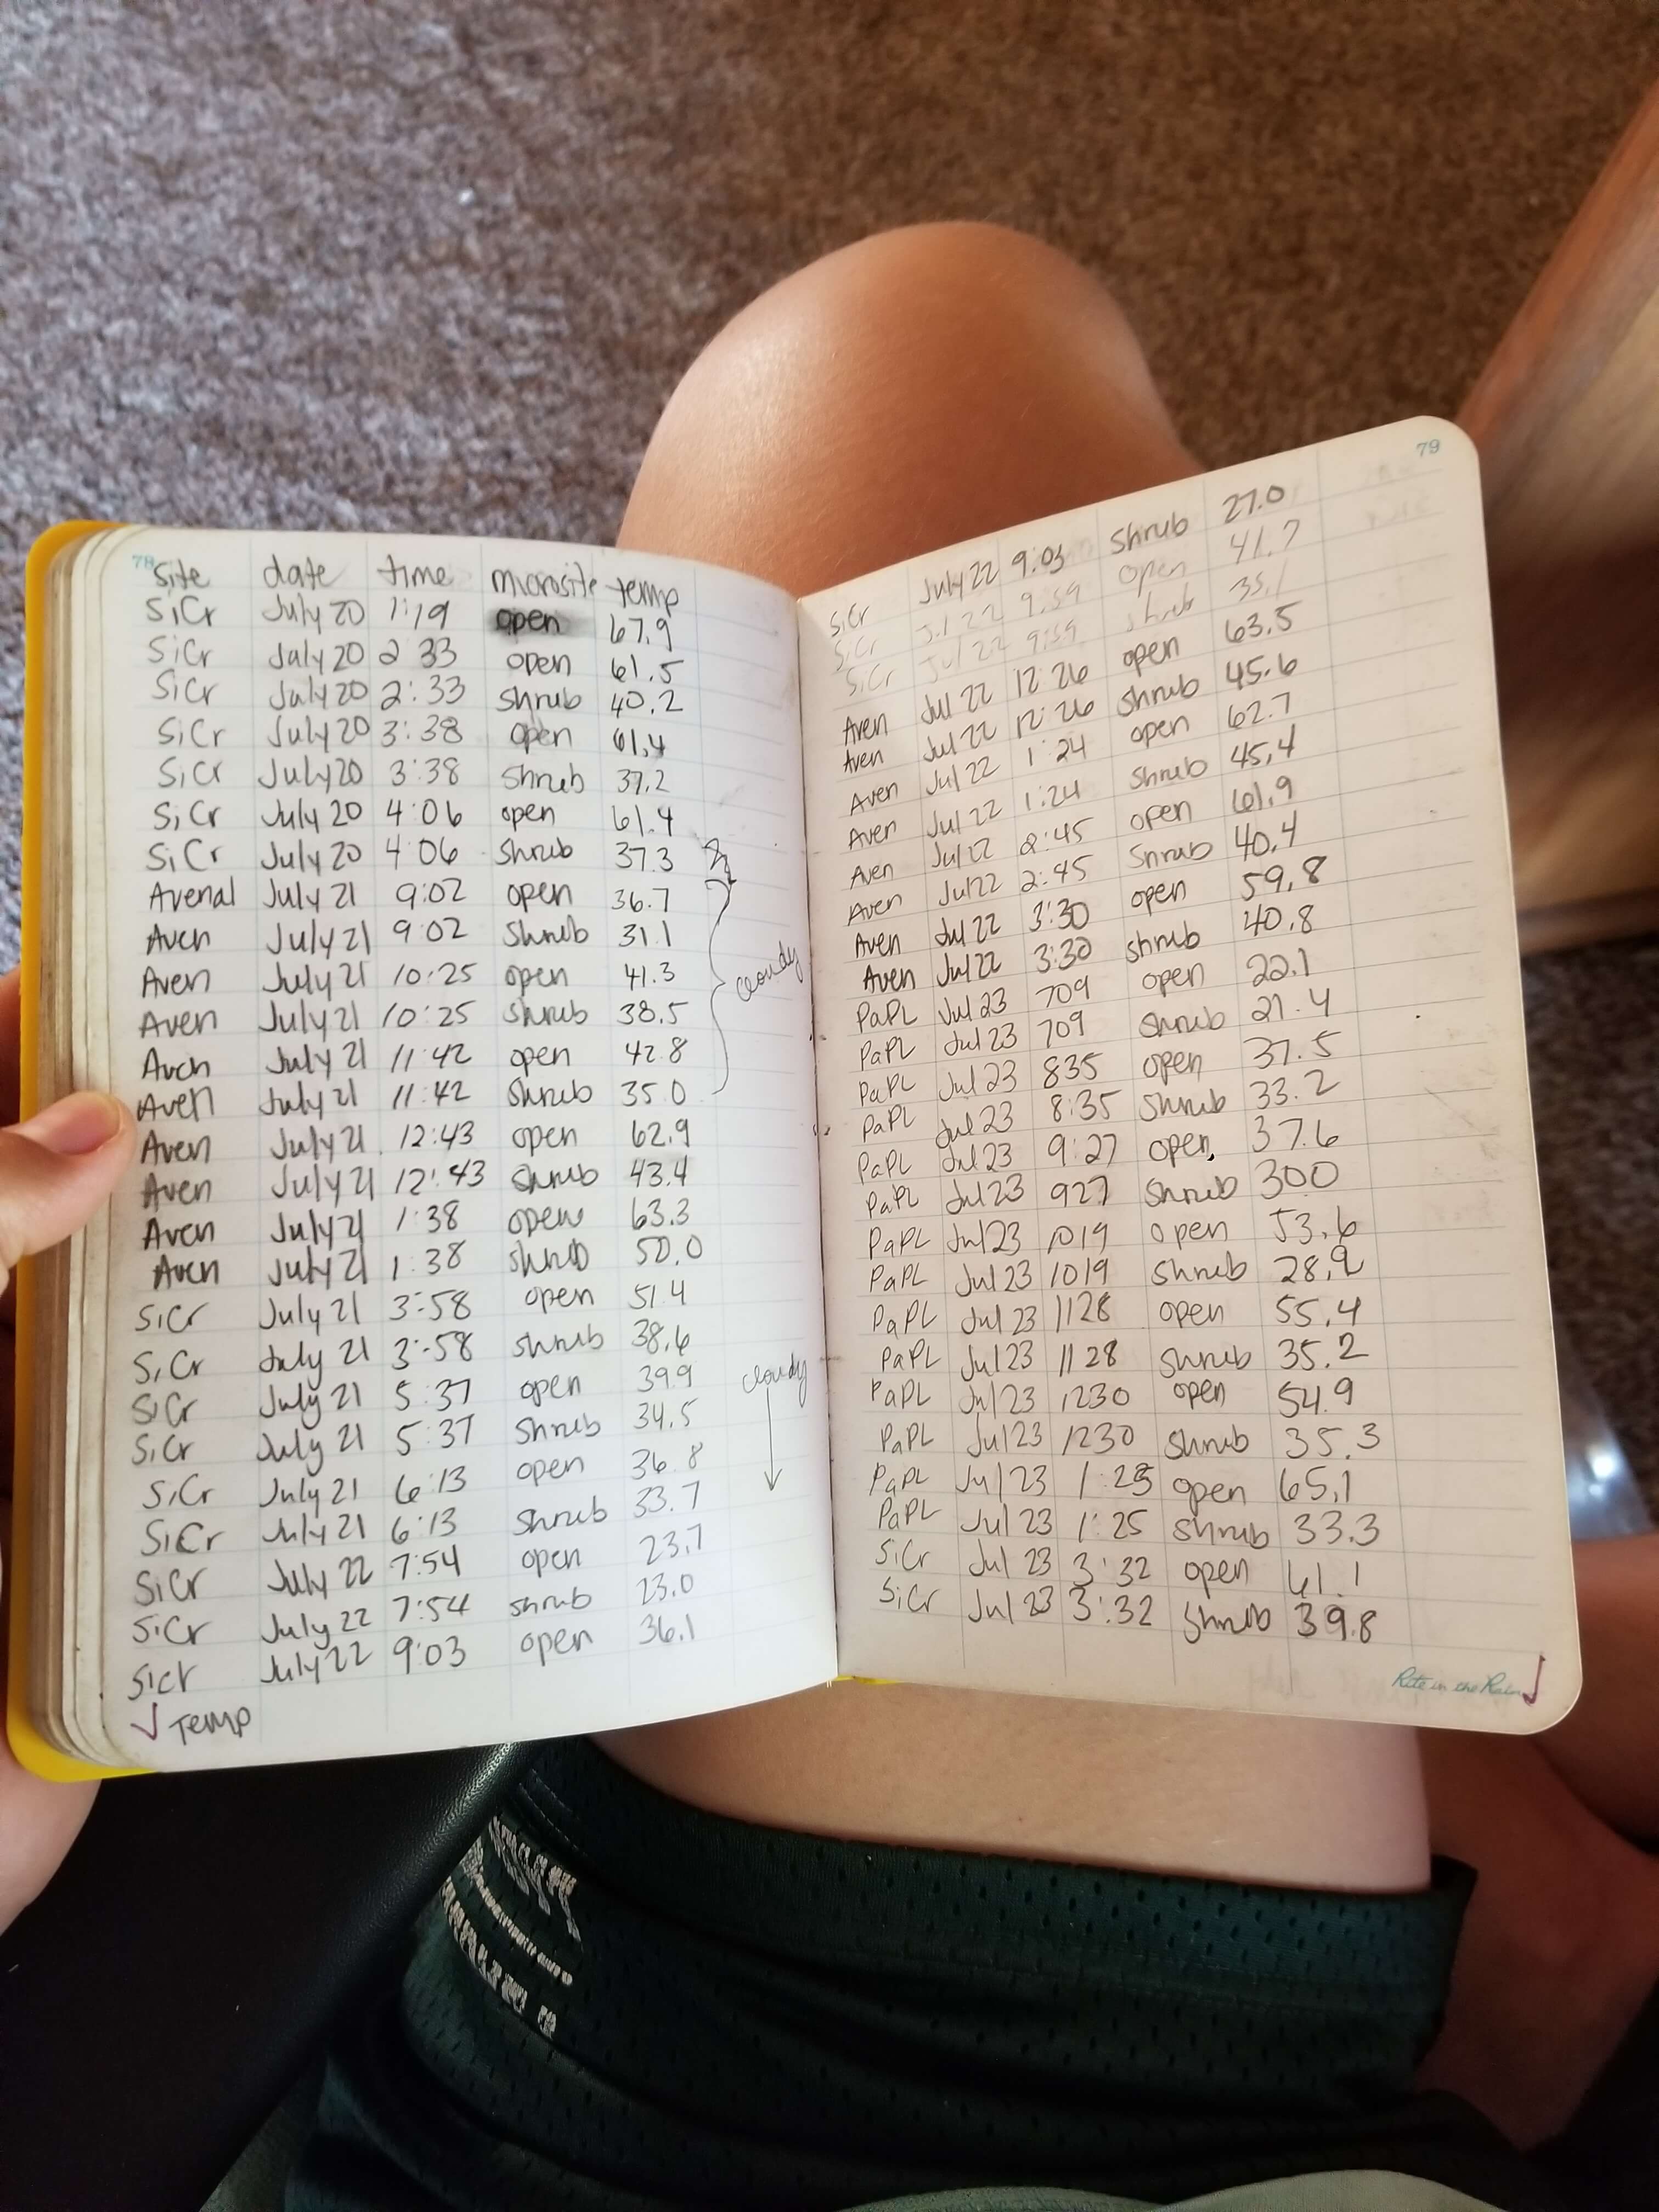 78
site date time microsite temp
SiCr July 20 1:19 open 67.9
SiCr July 20 2 33 open 61.5
SiCr July 20 2:33 shrub 40.2
SiCr July 20 3:38 open 61.4
SiCr July 20 3:38 shrub 37.2
SiCr July 20 4:06 open 61.4
SiCr July 20 4:06 shrub 37.3
Avenal July 21 9:02 open 36.7
Aven July 21 9:02 shrub 31.1
Aven July 21 10:25 open 41.3
cloudy
Aven July 21 10:25 shrub 38.5
Aven July 21 11:42 open 42.8
Aven July 21 11:42 shrub 35.0
Aven July 21 12:43 open 62.9
Aven July 21 12:43 shrub 43.4
Aven July 21 1:38 open 63.3
Aven July 21 1:38 shrub 50.0
SiCr July 21 3:58 open 51.4
SiCr July 21 3:58 shrub 38.6
SiCr July 21 5:37 open 39.9
cloudy
SiCr July 21 5:37 shrub 34.5
SiCr July 21 6:13 open 36.8
SiCr July 21 6:13 shrub 33.7
SiCr July 22 7:54 open 23.7
SiCr July 22 7:54 shrub 23.0
SiCr July 22 9:03 open 36.1
✓ Temp
79
SiCr July 22 9:03 shrub 27.0
SiCr Jul 22 9:59 open 41.7
SiCr Jul 22 9:59 shrub 35.1
Aven Jul 22 12:26 open 63.5
Aven Jul 22 12:26 shrub 45.6
Aven Jul 22 1:24 open 62.7
Aven Jul 22 1:24 shrub 45.4
Aven Jul 22 2:45 open 61.9
Aven Jul 22 2:45 shrub 40.4
Aven Jul 22 3:30 open 59.8
Aven Jul 22 3:30 shrub 40.8
PaPL Jul 23 709 open 22.1
PaPL Jul 23 709 shrub 21.4
PaPL Jul 23 835 open 37.5
PaPL Jul 23 8:35 shrub 33.2
PaPL Jul 23 9:27 open 37.6
PaPL Jul 23 927 shrub 30.0
PaPL Jul 23 1019 open 53.6
PaPL Jul 23 1019 shrub 28.9
PaPL Jul 23 1128 open 55.4
PaPL Jul 23 1128 shrub 35.2
PaPL Jul 23 1230 open 54.9
PaPL Jul 23 1230 shrub 35.3
PaPL Jul 23 1:25 open 65.1
PaPL Jul 23 1:25 shrub 33.3
SiCr Jul 23 3:32 open 61.1
SiCr Jul 23 3:32 shrub 39.8
Rite in the Rain ✓